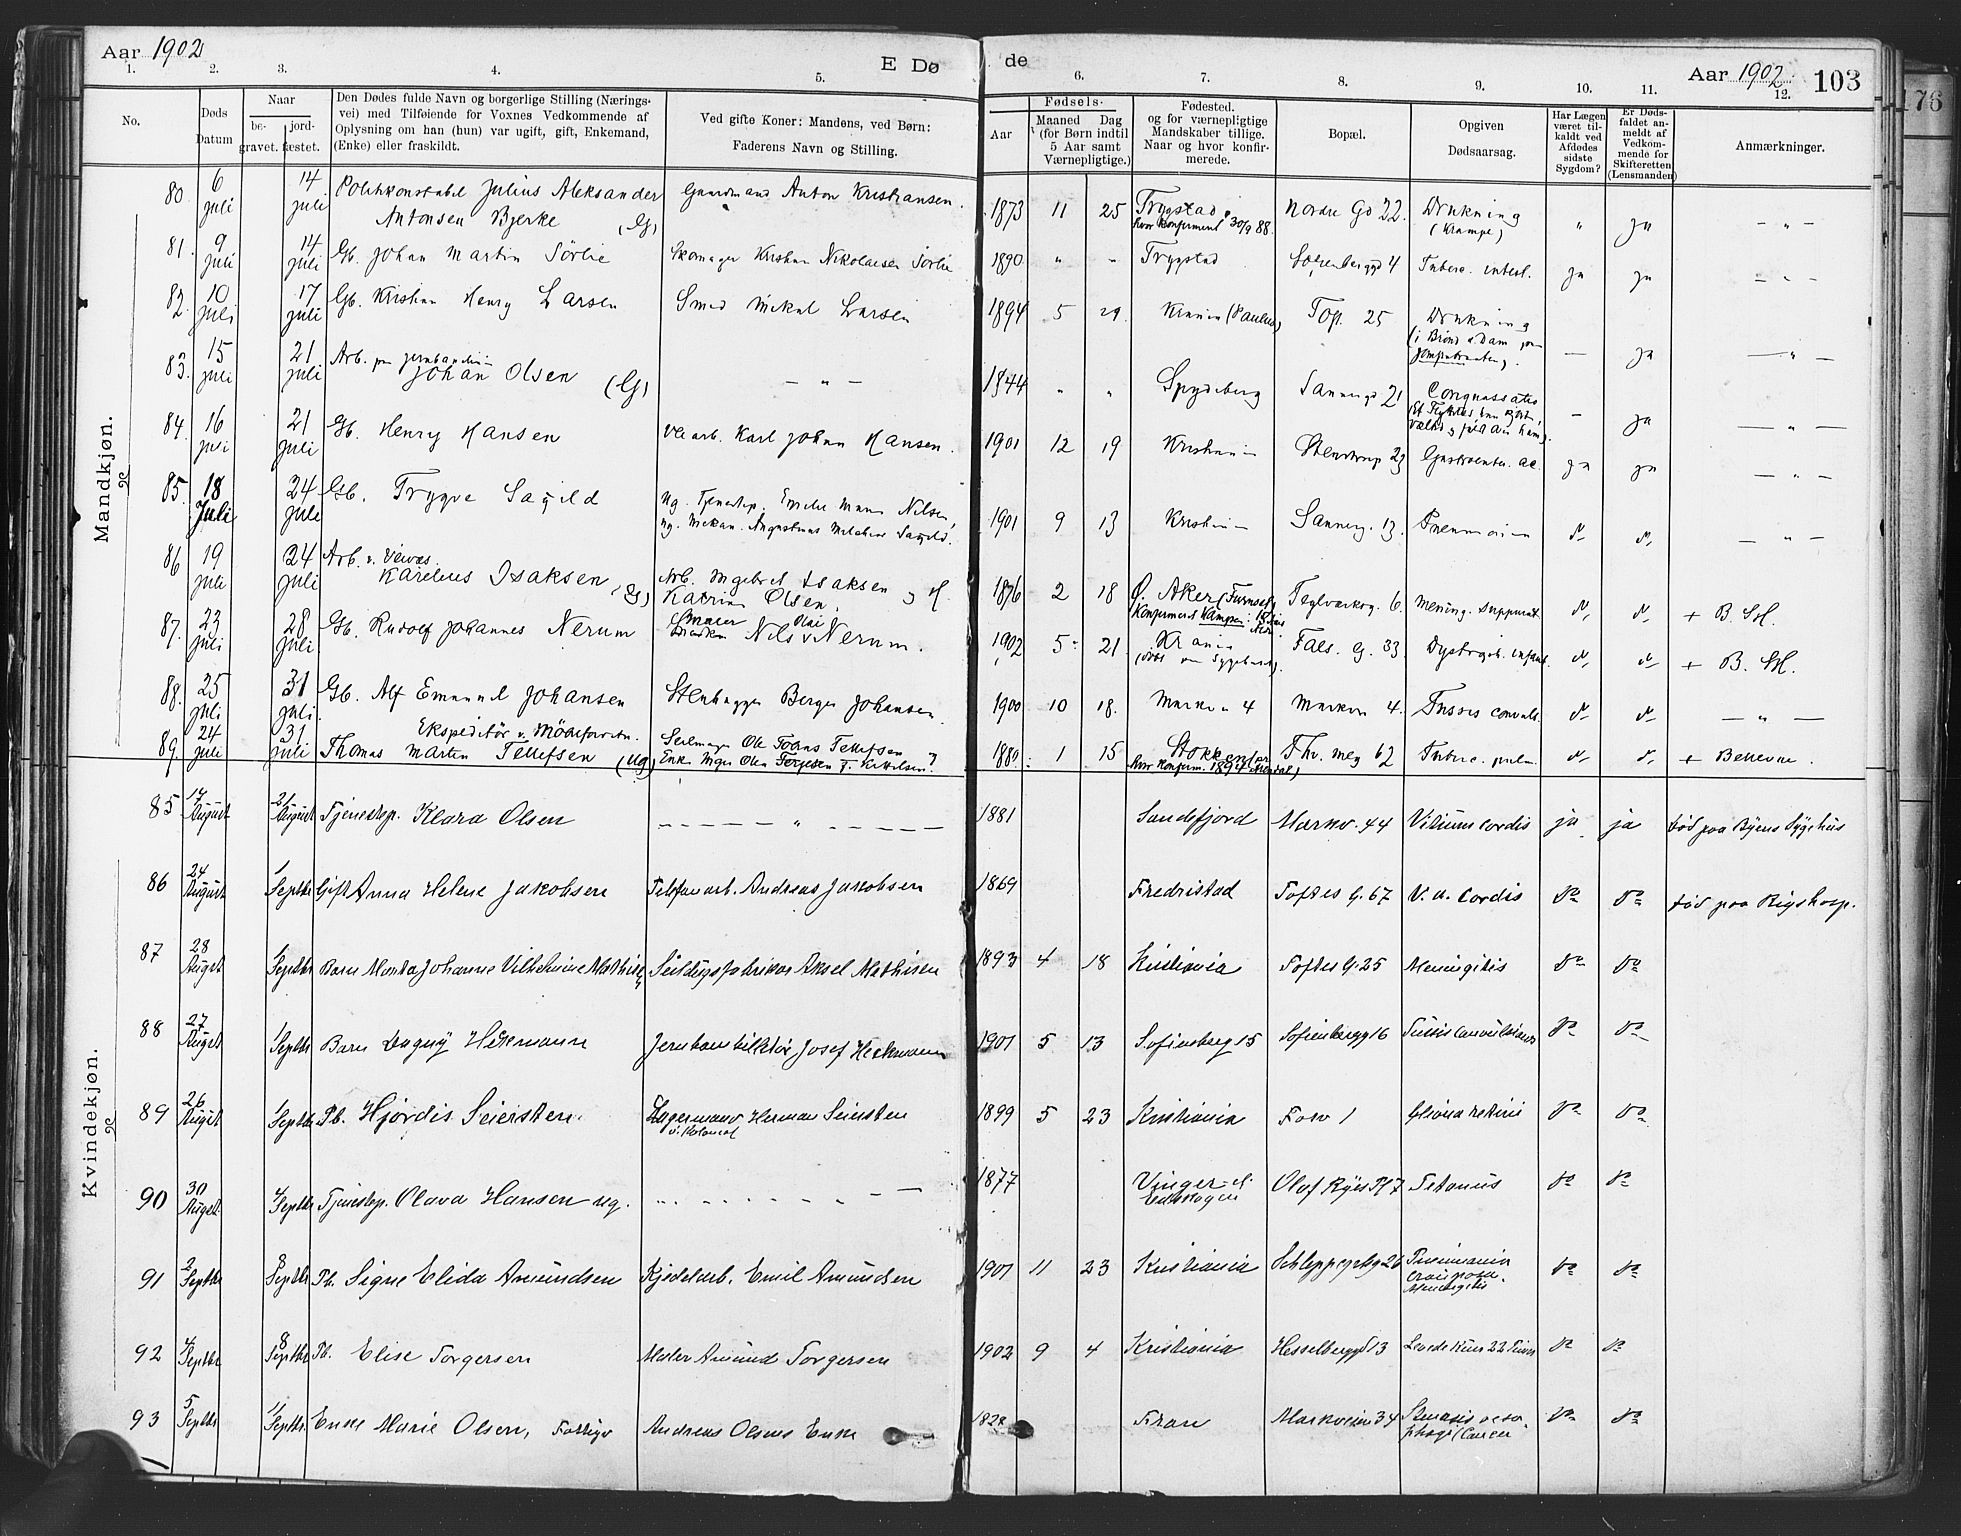 Aar 1902 E Døde Aar 1902. 103
1. 2. 3. 4. 5. 6. 7. 8. 9. 10. 11. 12.
No.
Døds Datum
Naar
be-gravet. jord-fæstet.
Den Dødes fulde Navn og borgerlige Stilling (Nærings-
vei) med Tilføiende for Voxnes Vedkommende af
Oplysning om han (hun) var ugift, gift, Enkemand,
(Enke) eller fraskildt.
Ved gifte Koner: Mandens, ved Børn:
Faderens Navn og Stilling.
Fødsels-
Aar
Maaned Dag
(for Børn indtil
5 Aar samt
Værnepligtige.)
Fødested.
og for værnepligtige
Mandskaber tillige.
Naar og hvor konfir-
merede.
Bopæl.
Opgiven
Dødsaarsag.
Har Lægen
været til-
kaldt ved
Afdødes
sidste
Sygdom?
Er Døds-
faldet an-
meldt af
Vedkom-
mende for
Skifteretten
(Lensmanden)
Anmærkninger.
Mandkjøn.
80. 6 juli 14 juli Politikonstabel Julius Aleksander Gaardmand Anton Kristiansen. 1873 11 25 Trygstad, Nordre Gd 22. Drukning " ja - " -
Antonsen Bjerke (G) hvor konfirmert 30/9 88. (Krampe)
81. 9 juli 14 juli Gb. Johan Martin Sörlie Skomager Kristian Nikolaisen Sörlie 1890 " " Trygstad Sofienberggd 4 Tuberc. intest. ja ja - " -
82. 10 juli 17 juli Gb. Kristian Henry Larsen Smed Mikal Larsen 1894 5 29. Krania (Paulus) Top. 25 Drukning - ja - " -
83. 15 juli 21 juli Arb. paa jernbanen
Johan Olsen (G) - " - 1844 " " Spydeberg Sannergd 21 Conquassatio - ja - " -
84. 16 juli 21 juli Gb. Henry Hansen Veiarb. Karl Johan Hansen. 1901 12 19 Kristiania Stenstrup 23 Gastroenter. ac. ja ja - " -
85. 18 Juli 24 juli Gb. Trygve Sagild Ug. Tjenestep. Emilie Marie Nilsen,
ug. Mekan. Augustinus Melchior Sagild. 1901 9 13 Kristiania Sannerg. 13. Pneumonia d- d- - " -
86 19 juli 24 juli Arb. v. Veivæs.
Karelius Isaksen (G) Arb. Ingebret Isaksen og H.
Katrine Olsen. 1876 2 18 Ø. Aker (Furuset) Teglverksg. 6. Mening. suppurat. d- d- + B. SH.
87. 23 juli 28 juli Gb. Rudolf Johannes Nerum Nils Nerum. 1902 5 21 Krania Fals. G. 33 d- d- + B. SH.
88. 25 juli 31 juli Gb. Alf Emanuel Johansen Stenhugger Berger Johansen. 1900 10 18. Markvn 4 Markvn 4. Tussis convuls. d- d- - " -
89. 24 juli 31 juli Ekspeditör v. Möbelforretn.
Thomas Martin Tellefsen (ug) Seilmager Ole Toans Tellefsen
Enke Inger Olea Terjesen f. Kittilsen. 1880 1 15 Stokken Th. meg 62 Tuberc. pulm. d- d- + Bellevue.
hvor konfirm. 1894
Kvindekjøn.
85 17 August 21 August Tjenestep. Klara Olsen - - - - " - - - - 1881 Sandefjord Markv. 44 Vitium cordis ja ja død paa Byens Sygehus
86 24 August 1 Septbr Gift Anna Helene Jakobsen Telefonarb. Andreas Jakobsen 1869 Fredristad Toftes G. 67 V. o. Cordis do do død paa Rigshosp.
87 28 August 1 Septbr Barn Monta Johanne Vilhelmine Mathisen Seildugsfabrikar Aksel Mathisen 1893 4 18 Kristiania Toftes G. 25 Meningitis do do
88 27 August 1 Septbr Barn Dagny Hekmann Josef Hekmann 1901 5 13 Sofienberg 15 Sofienbergg 16 Tussis Convulsiva do do
89 26 August 1 Septbr Pb. Hjördis Seiersten. Lagermand Herman Seiersten
v. Kolonial 1899 5 23 Kristiania Fosv 1 Glioma retinæ do do
90 30 August 4 Septbr Tjenestep. Olava Hansen ug. - - - - - 1877 Vinger
Eidskogen Olaf Ryes Pl 7 Tetanus do do
91 2 Septbr 8 Septbr Pb. Signe Elida Amundsen Kjedelarb. Emil Amundsen 1901 11 23 Kristiania Schleppegrells g 26 Pneumonia
crouposa.
Meningitis do do
92 4 Septbr 8 Septbr Pb. Elise Torgersen Maler Amund Torgersen 1902 9 4 Kristiania Hesselberggd 13 Levede kun 22 Timer do do
93 5 Septbr 11 Septbr Enke Marie Olsen, Fattigv Andreas Olsens Enke 1828 Fron Markveien 34 Stenosis oeso-
phagi (Cancer do do